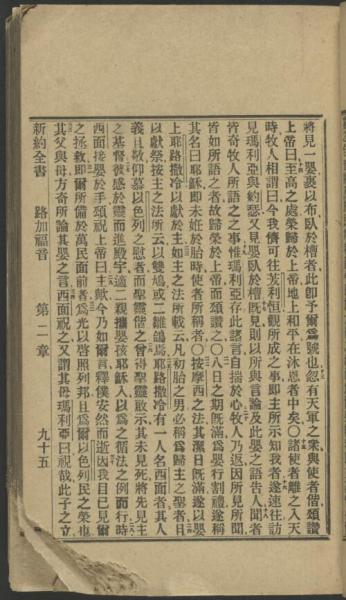 將見一嬰裹以布臥於槽者此卽予爾爲號也忽有天軍之衆與使者偕頌讚
上帝曰至高之處榮歸於上帝地上和平在沐恩者中矣○諸使者離之入天
時牧人相謂曰今我儕可往茇利恒觀所成之事卽主所示知我者遂速往訪
見瑪利亞與約瑟又見嬰臥於槽旣見則以所與言論及此嬰之語告人聞者
皆奇牧人所語之之事惟瑪利亞存此諸言自揣於心牧人乃返因所見所聞
皆如所語之者故歸榮於上帝而頌讚之○八日之期旣滿爲嬰行割禮遂稱
其名曰耶穌卽未妊於胎時使者所稱者○按摩西之法其潔日旣滿遂以嬰
上耶路撒冷以獻於主如主之法所載云凡初胎之男必稱爲歸主之聖者且
以獻祭按主之法所云以雙鳩或二雛鴿焉耶路撒冷有一人名西面者其人
義且敬仰慕以色列之慰者而聖靈偕之曾得聖靈啟示其未見死將先見主
之基督彼感於靈而進殿宇適二親攜嬰孩耶穌入以爲之循法之例而行時
西面接嬰於手頌祝上帝曰主歟今乃如爾言釋僕安然而逝因我目已見爾
之拯救卽爾所備於萬民面前者爲光以啓照列邦且爲爾以色列民之榮也
其父與母方奇所論其嬰之言西面祝之又謂其母瑪利亞曰視哉此子之立
新約全書 路加福音 第二章 九十五